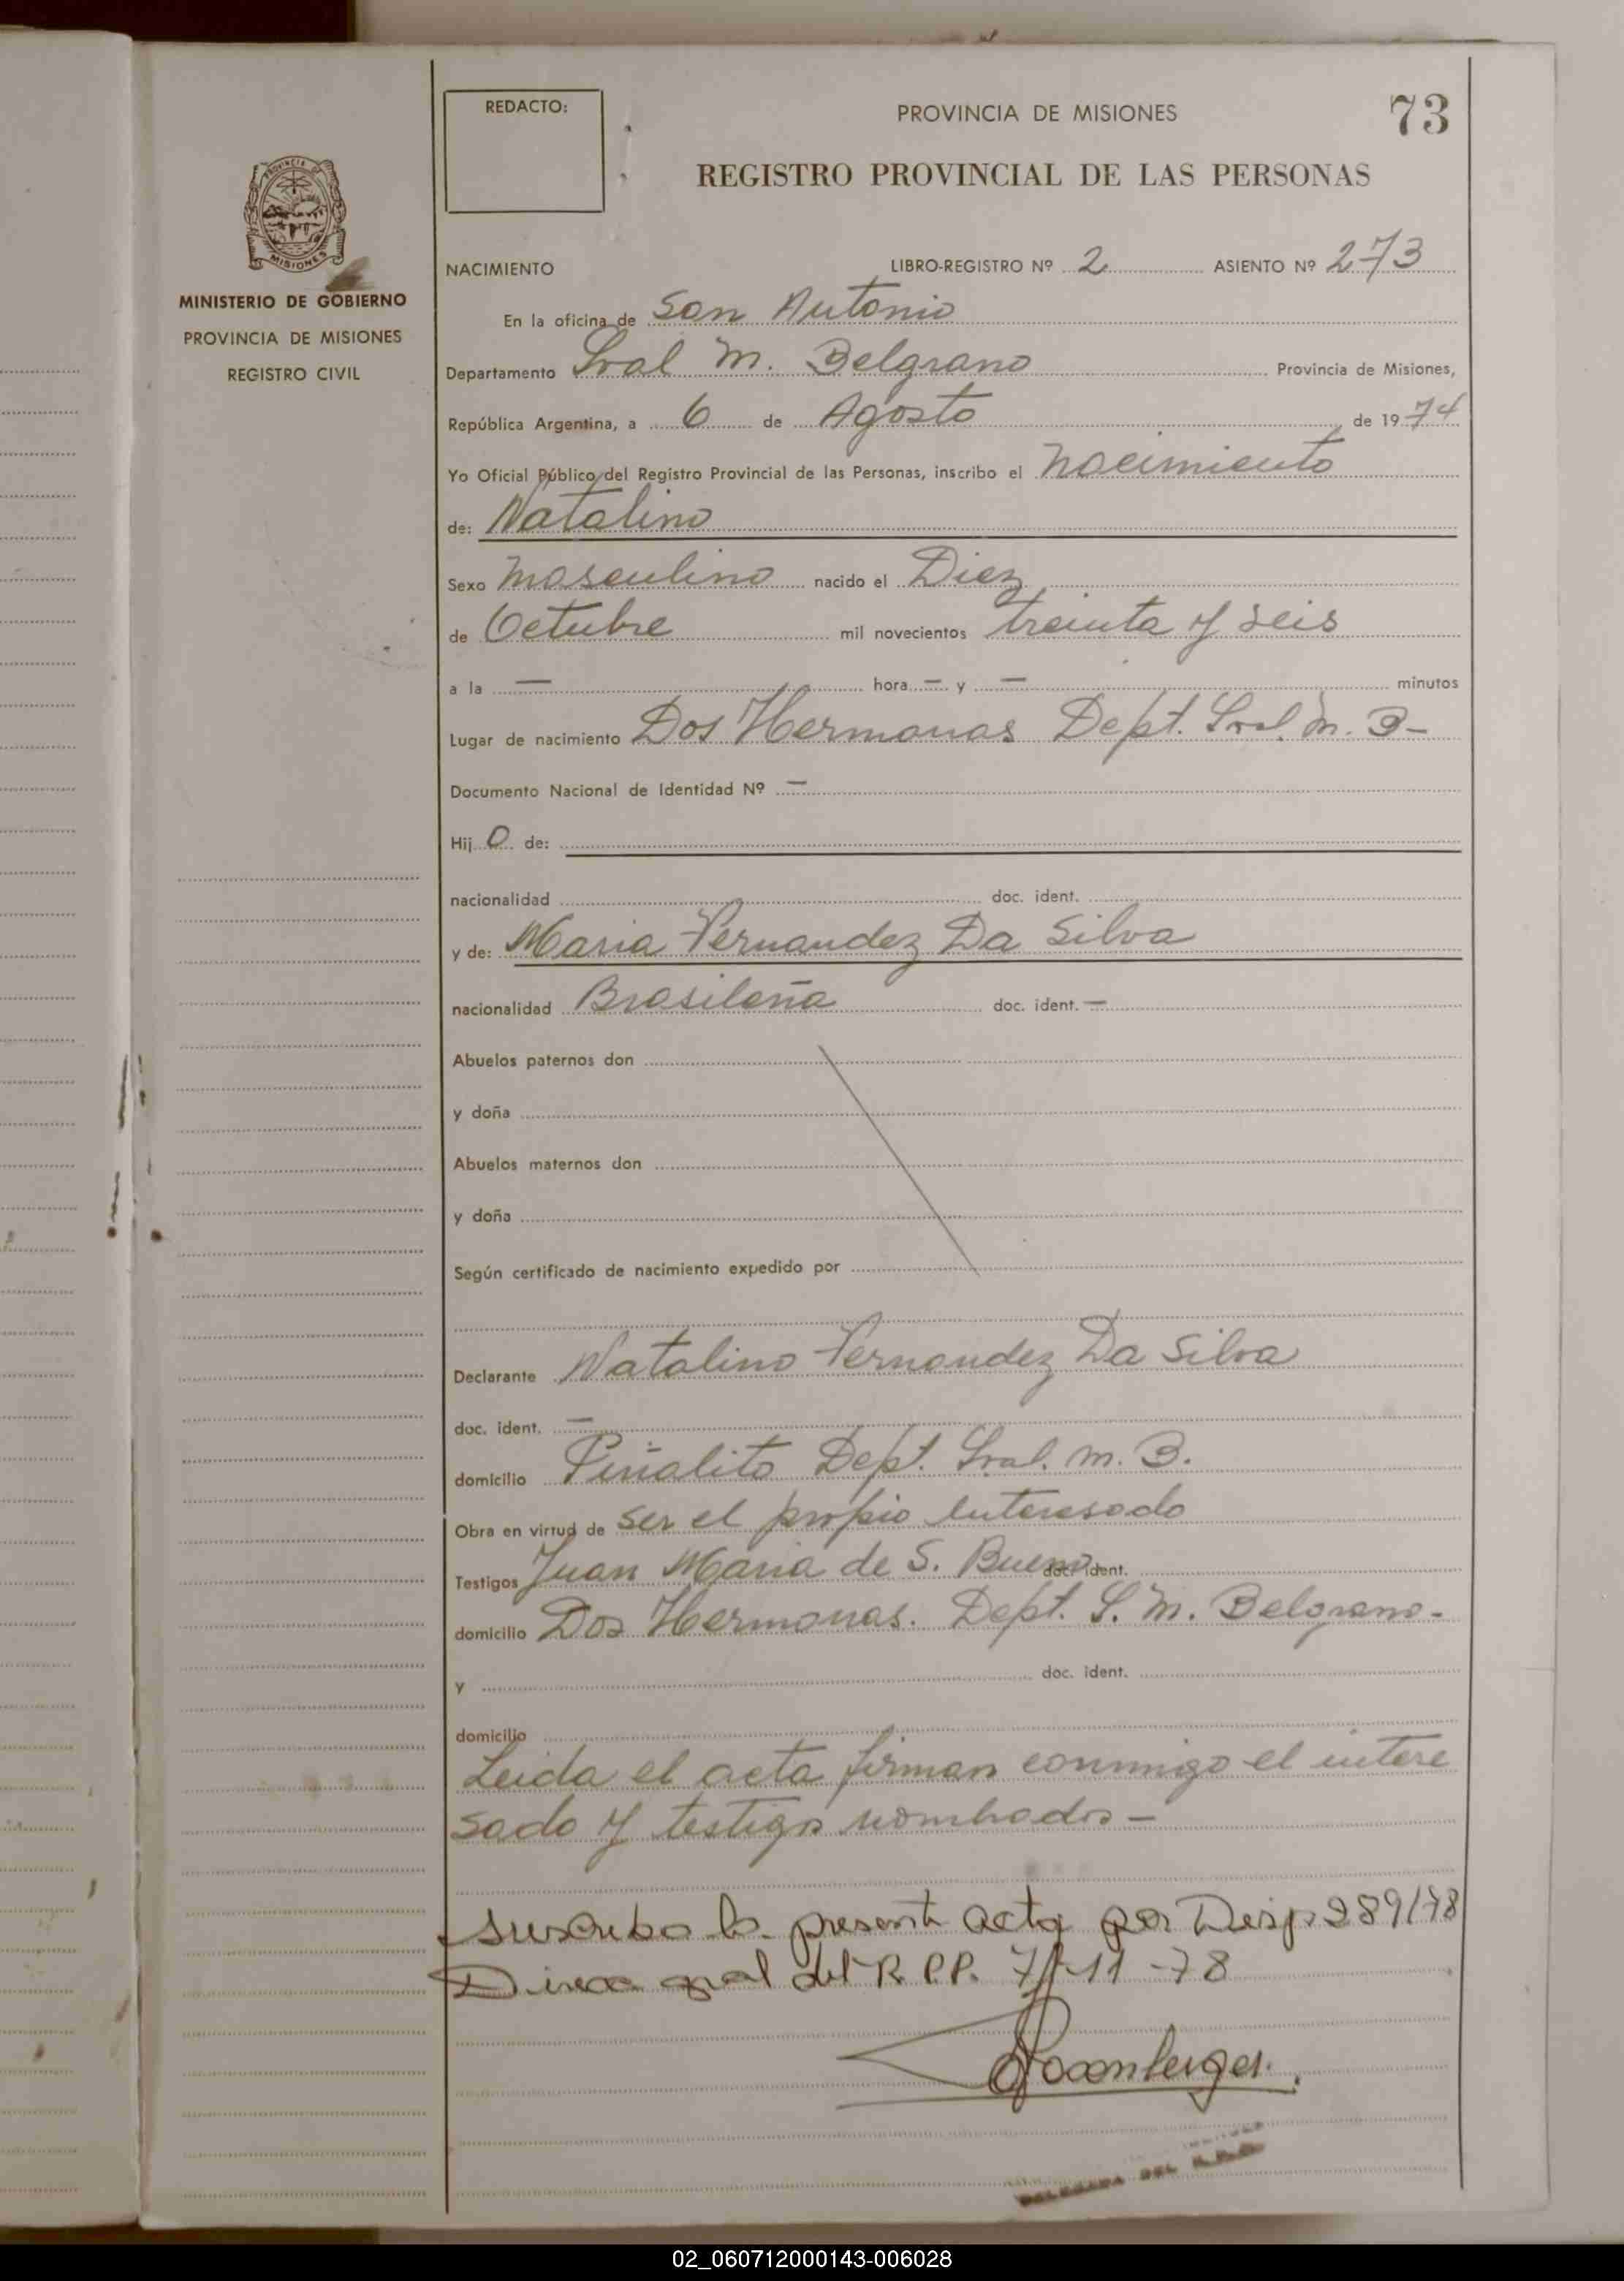 REDACTO:
PROVINCIA DE MISIONES
73
REGISTRO PROVINCIAL DE LAS PERSONAS
PROVINCIA
MISIONES
MINISTERIO DE GOBIERNO
PROVINCIA DE MISIONES
REGISTRO CIVIL
NACIMIENTO LIBRO-REGISTRO Nº 2 ASIENTO Nº 273
En la oficina de San Antonio
Departamento Gral M. Belgrano Provincia de Misiones,
República Argentina, a 6 de Agosto de 1974
Yo Oficial Público del Registro Provincial de las Personas, inscribo el Nacimiento
de: Natalino
Sexo Masculino nacido el Diez
de Octubre mil novecientos treinta y seis
a la — hora — y — minutos
Lugar de nacimiento Dos Hermanas Dept. Gral. M. B-
Documento Nacional de Identidad Nº —
Hij O de:
nacionalidad doc. ident.
y de: Maria Fernandez Da Silva
nacionalidad Brasileña doc. ident. —
Abuelos paternos don
y doña
Abuelos maternos don
y doña
Según certificado de nacimiento expedido por
Declarante Natalino Fernandez Da Silva
doc. ident. —
domicilio Piñalito Dept. Gral. M. B.
Obra en virtud de ser el propio Interesado
Testigos Juan Maria de S. Bueno doc. ident.
domicilio Dos Hermanas. Dept. G. M. Belgrano-
y doc. ident.
domicilio
Leida el acta firman conmigo el intere
sado y testigo nombrados -
Suscribo la presente acta por Disp 289/78
Direcc gral del R.P.P. 7-11-78
DELEGADA DEL R.P.P.
02_060712000143-006028